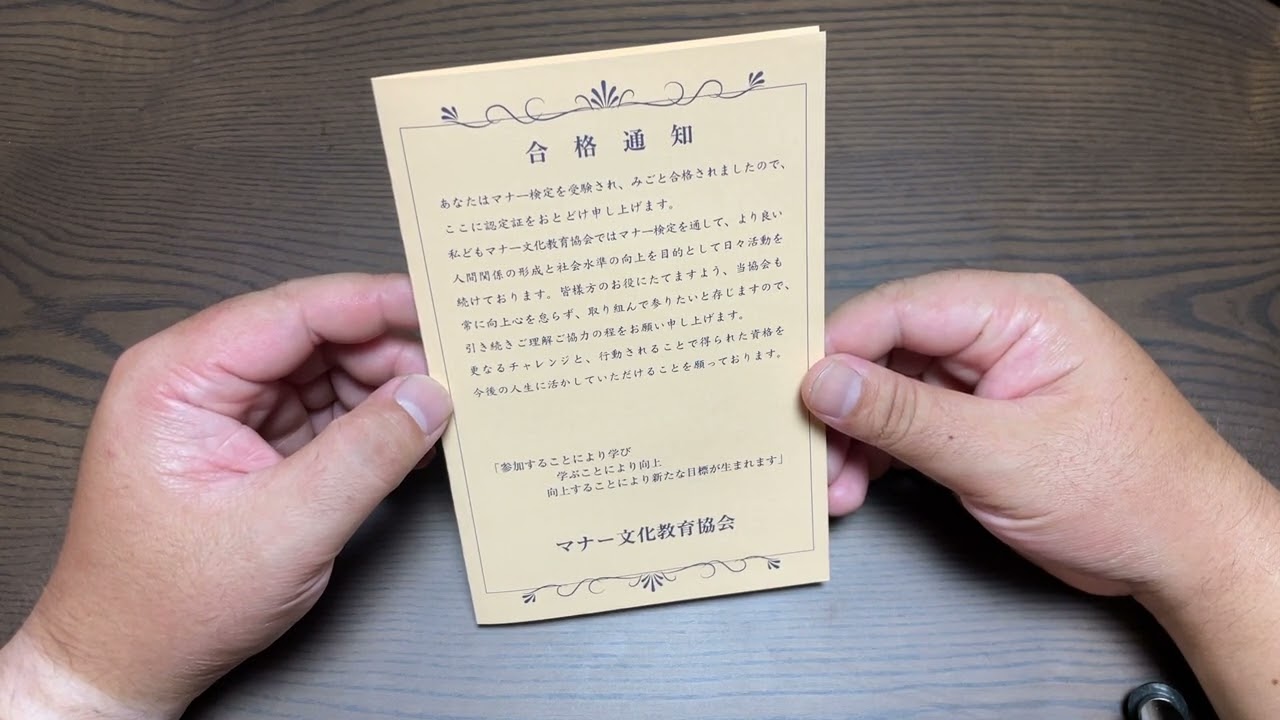 合格通知
あなたはマナー検定を受験され、みごと合格されましたので、
ここに認定証をおとどけ申し上げます。
私どもマナー文化教育協会ではマナー検定を通して、より良い
人間関係の形成と社会水準の向上を目的として日々活動を
続けております。皆様方のお役にたてますよう、当協会も
常に向上心を怠らず、取り組んで参りたいと存じますので、
引き続きご理解ご協力の程をお願い申し上げます。
更なるチャレンジと、行動されることで得られた資格を
今後の人生に活かしていただけることを願っております。
「参加することにより学び
学ぶことにより向上
向上することにより新たな目標が生まれます」
マナー文化教育協会